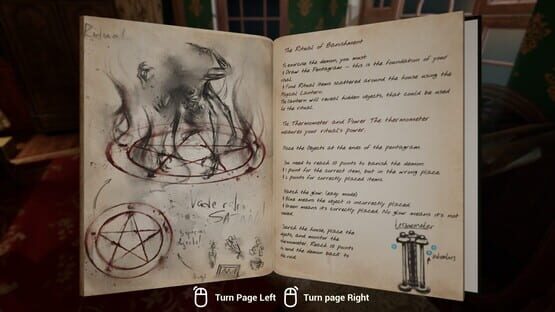 Ritual
The Ritual of Banishment
To exorcise the demon, you must
Draw the Pentagram – this is the foundation of your
ritual.
Find Ritual items scattered around the house using the
Magical Lantern.
The lantern will reveal hidden objects, that could be used
in the ritual.
The Thermometer and Power The thermometer
measures your ritual's power.
Place the Objects at the ends of the pentagram.
You need to reach 10 points to banish the demon:
1 point for the correct item, but in the wrong place
2 points for correctly placed items
Watch the glow: (easy mode)
Blue means the object is incorrectly placed
Green means it's correctly placed. No glow means it's not
Search the house, place the
objects, and monitor the
thermometer. Reach 10 points
to send the demon back to
the
Turn Page Left
Turn page Right